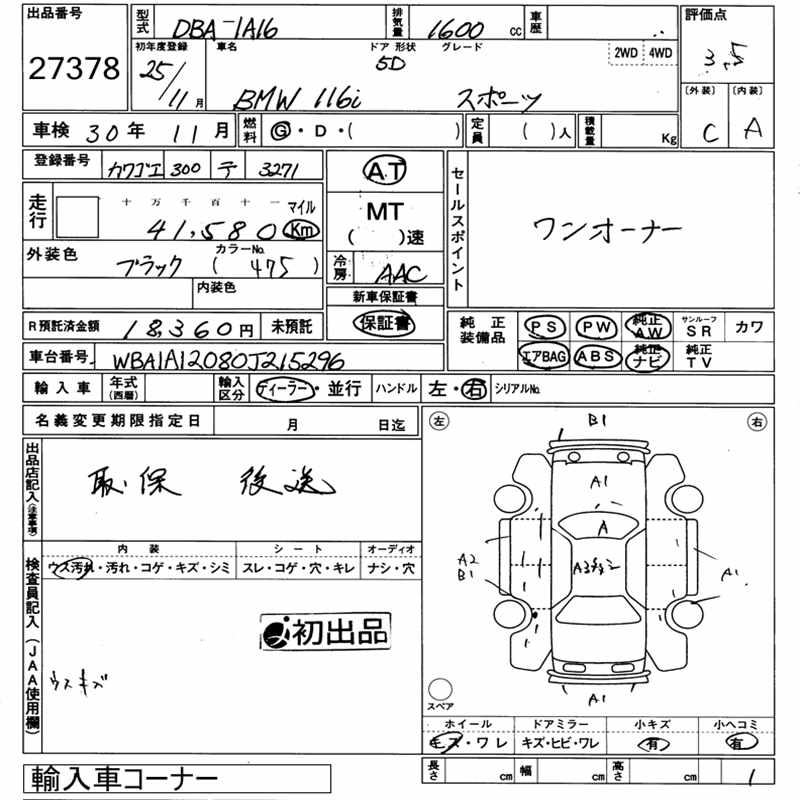 出品番号 27378
型式 DBA-1A16 排気量 1600 cc 車歴
評価点 3.5
初年度登録 25/11月 車名 BMW 116i ドア 形状 5D グレード スポーツ 2WD 4WD
〔外装〕 C 〔内装〕 A
車検 30年 11月 燃料 G・D・( ) 定員 ( )人 積載量 Kg
登録番号 カワゴエ 300 テ 3271
走行 十万千百十一 41,580 マイル Km
外装色 ブラック カラーNo. (475)
内装色
AT
MT
( )速
冷房 AAC
セールスポイント ワンオーナー
新車保証書
保証書
R預託済金額 18,360円 未預託
純正装備品 PS PW 純正AW サンルーフSR カワ
エアBAG ABS 純正ナビ 純正TV
車台番号 WBA1A12080J215296
輸入車 年式(西暦) 輸入区分 ディーラー・並行 ハンドル 左・右 シリアルNo.
名義変更期限指定日 月 日迄
出品店記入(注意事項) 取・保 後送
内装 シート オーディオ
ウス汚れ・汚れ・コゲ・キズ・シミ スレ・コゲ・穴・キレ ナシ・穴
検査員記入(JAA使用欄)
初出品
ウスキズ
左 B1 右
A1
A
A2
B1
A1
A1
スペア
ホイール ドアミラー 小キズ 小ヘコミ
キズ・ワレ キズ・ヒビ・ワレ 有 有
長さ cm 幅 cm 高さ cm 1
輸入車コーナー